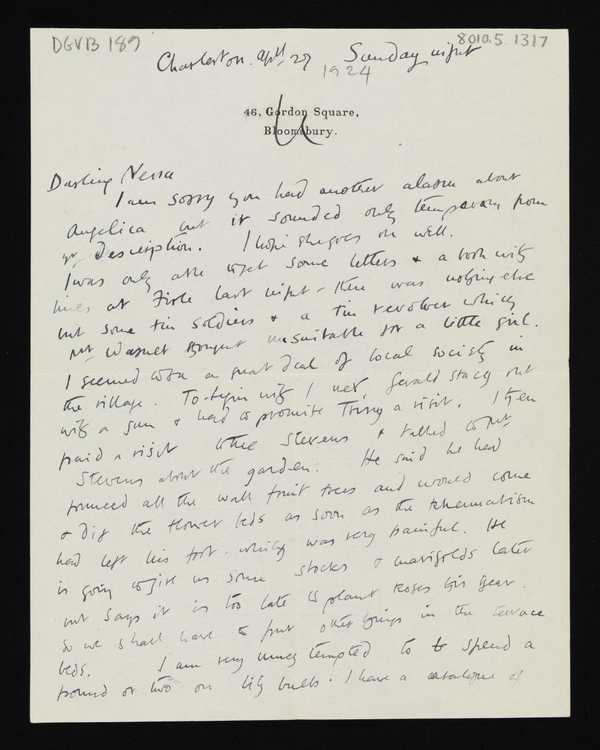 DGVB 189
8010.5.1317
Charleston. April 27 Sunday night
1924
46, Gordon Square,
Bloomsbury.
Darling Nessa
I am sorry you had another alarm about
Angelica but it sounded only temporary from
yr description. I hope she goes on well.
I was only able to get some letters & a book with
lines at Firle last night - there was nothing else
but some tin soldiers & a tin revolver which
Mr thought unsuitable for a little girl.
I seemed to a great deal of local society in
the village. To begin with I met Gerald Stacey out
with a gun & had to promise him a visit. I then
paid a visit to the Stevens & talked to Mr
Stevens about the garden. He said he had
pruned all the wall fruit trees and would come
& dig the flower beds as soon as the rheumatism
had left his foot which was very painful. He
is going to give us some stocks & marigolds later
but says it is too late to plant roses this year.
So we shall have to put other things in the terrace
beds. I am very much tempted to to spend a
pound or two on lily bulbs. I have a catalogue of